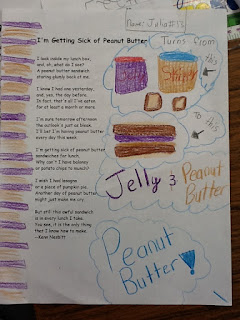 Name: Julia #13
I'm Getting Sick of Peanut Butter
Turns from
this
I look inside my lunch box,
and, oh, what do I see?
A peanut butter sandwich
staring glumly back at me.
I know I had one yesterday,
and, yes, the day before.
In fact, that's all I've eaten
for at least a month or more.
I'm sure tomorrow afternoon
the outlook is just as bleak.
I'll bet I'm having peanut butter
every day this week.
I'm getting sick of peanut butter
sandwiches for lunch.
Why can't I have baloney
or potato chips to munch?
I wish I had lasagna
or a piece of pumpkin pie.
Another day of peanut butter
might just make me cry.
But still this awful sandwich
is in every lunch I take.
You see, it is the only thing
that I know how to make.
--Kenn Nesbitt
Skippy
To
this
Jelly &
Peanut
Butter
Peanut
Butter!